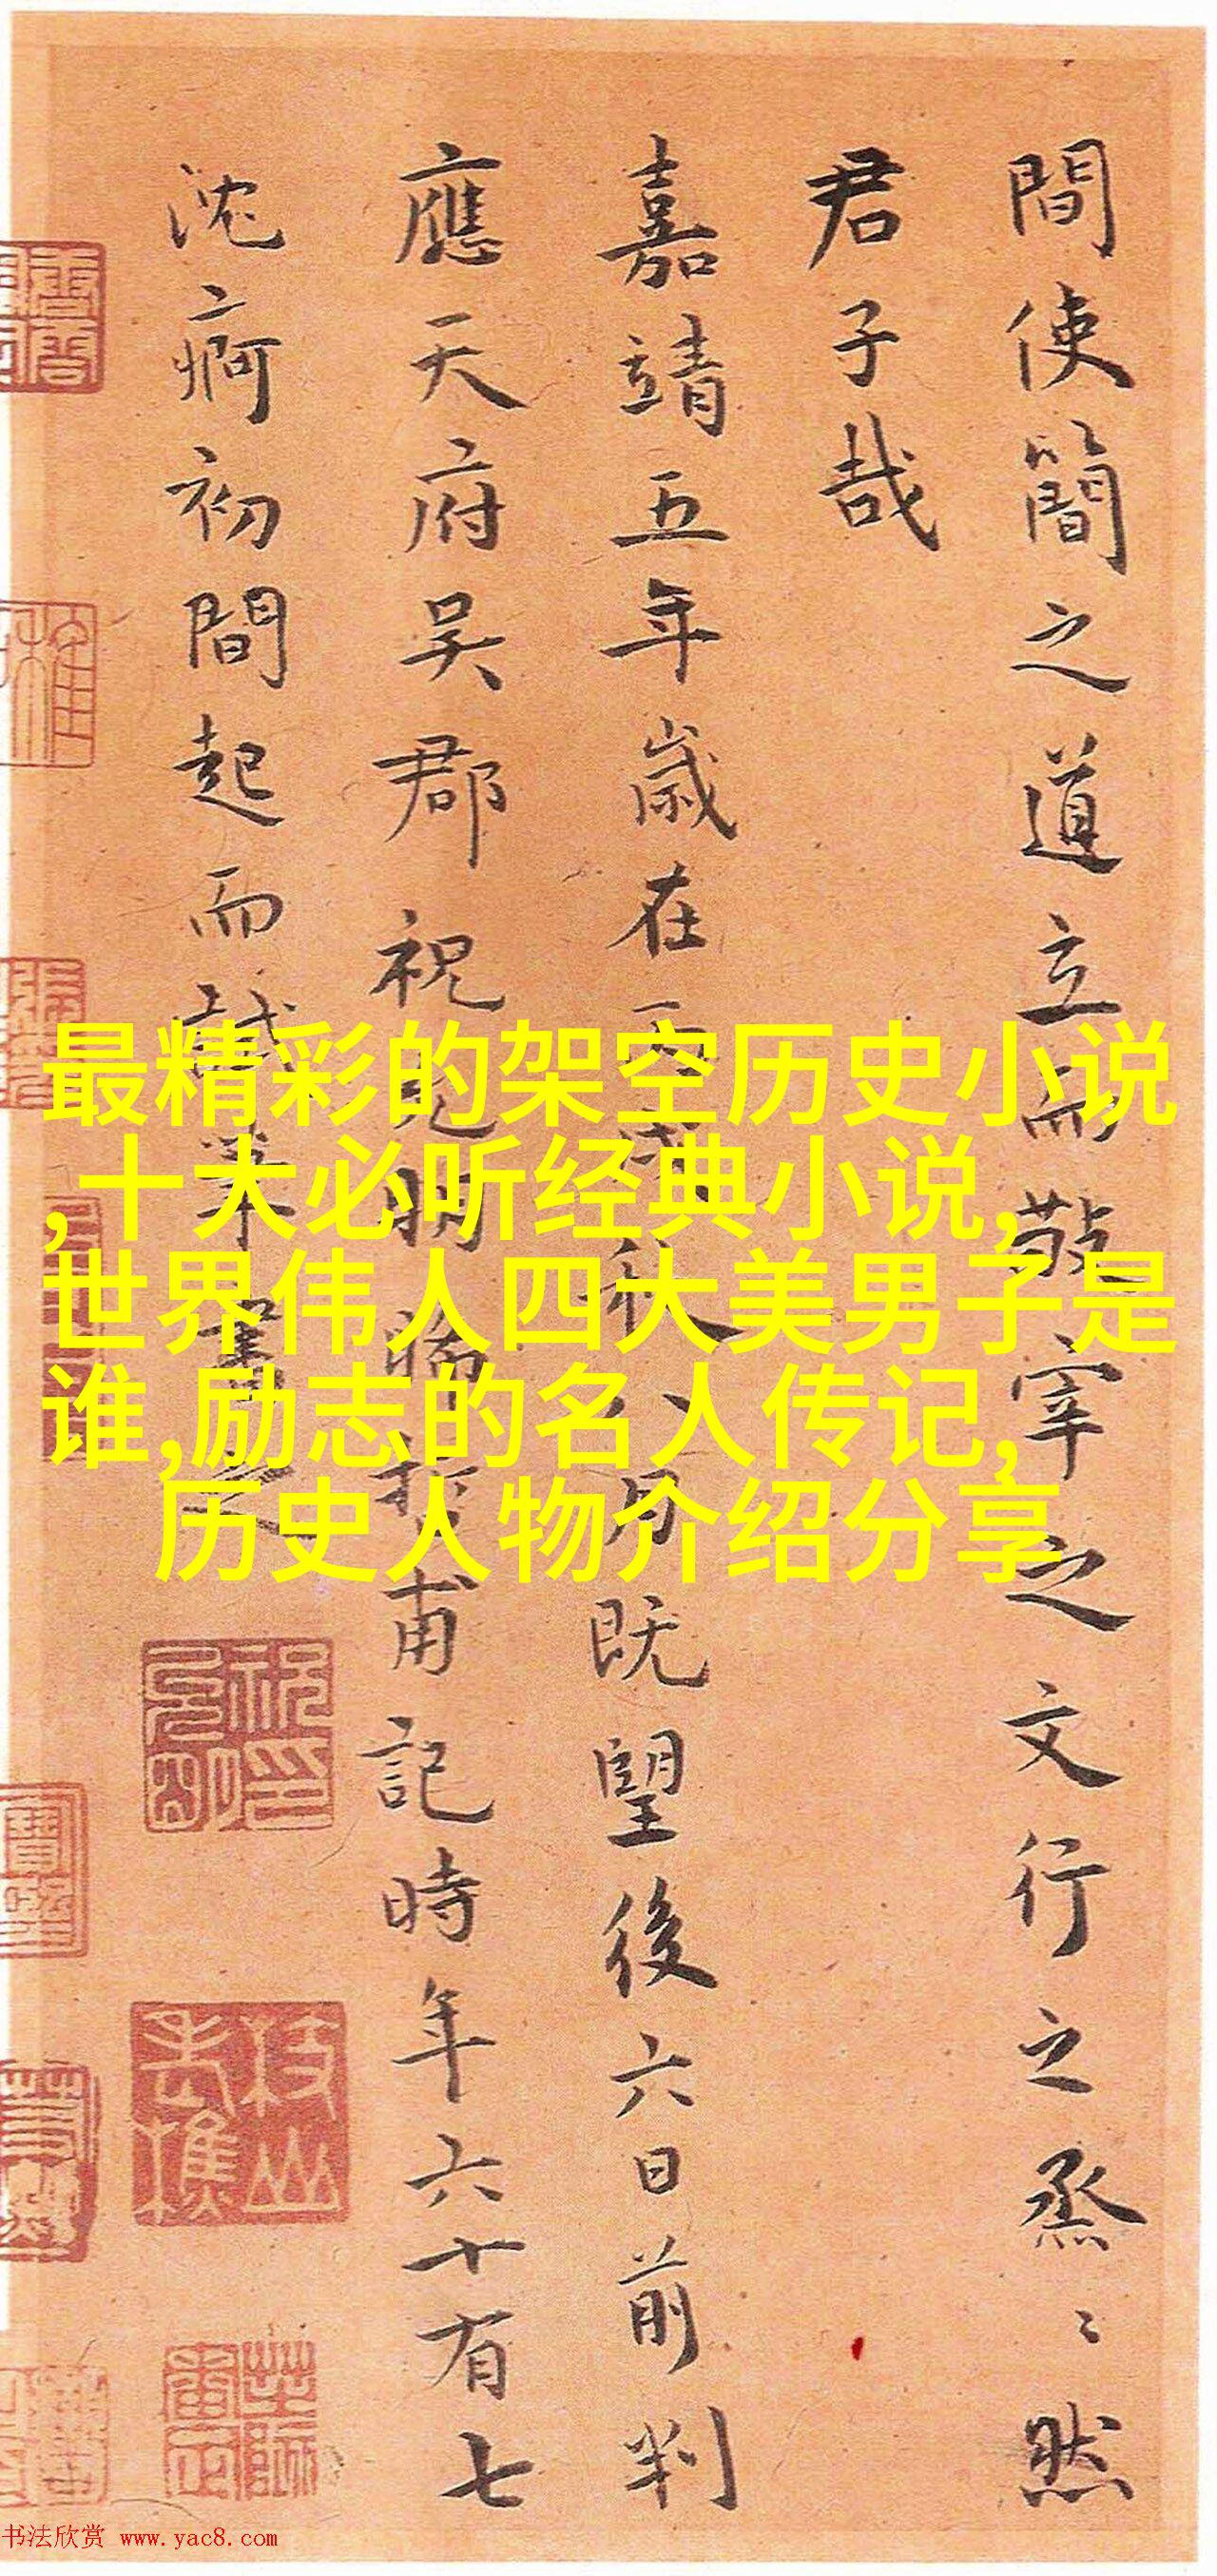 間使簡之道立而敬宰之文行之烝〻然
君子哉
嘉靖五年歲在丙戌秋八月既望後六日前判
應天府吳郡祝允明晞哲甫記時年六十有七
沈痾初間起而試筆書之
最精彩的架空历史小说
,十大必听经典小说,
世界伟人四大美男子是
谁,励志的名人传记,
历史人物介绍分享
祝印允明
书法欣赏 www.yac8.com